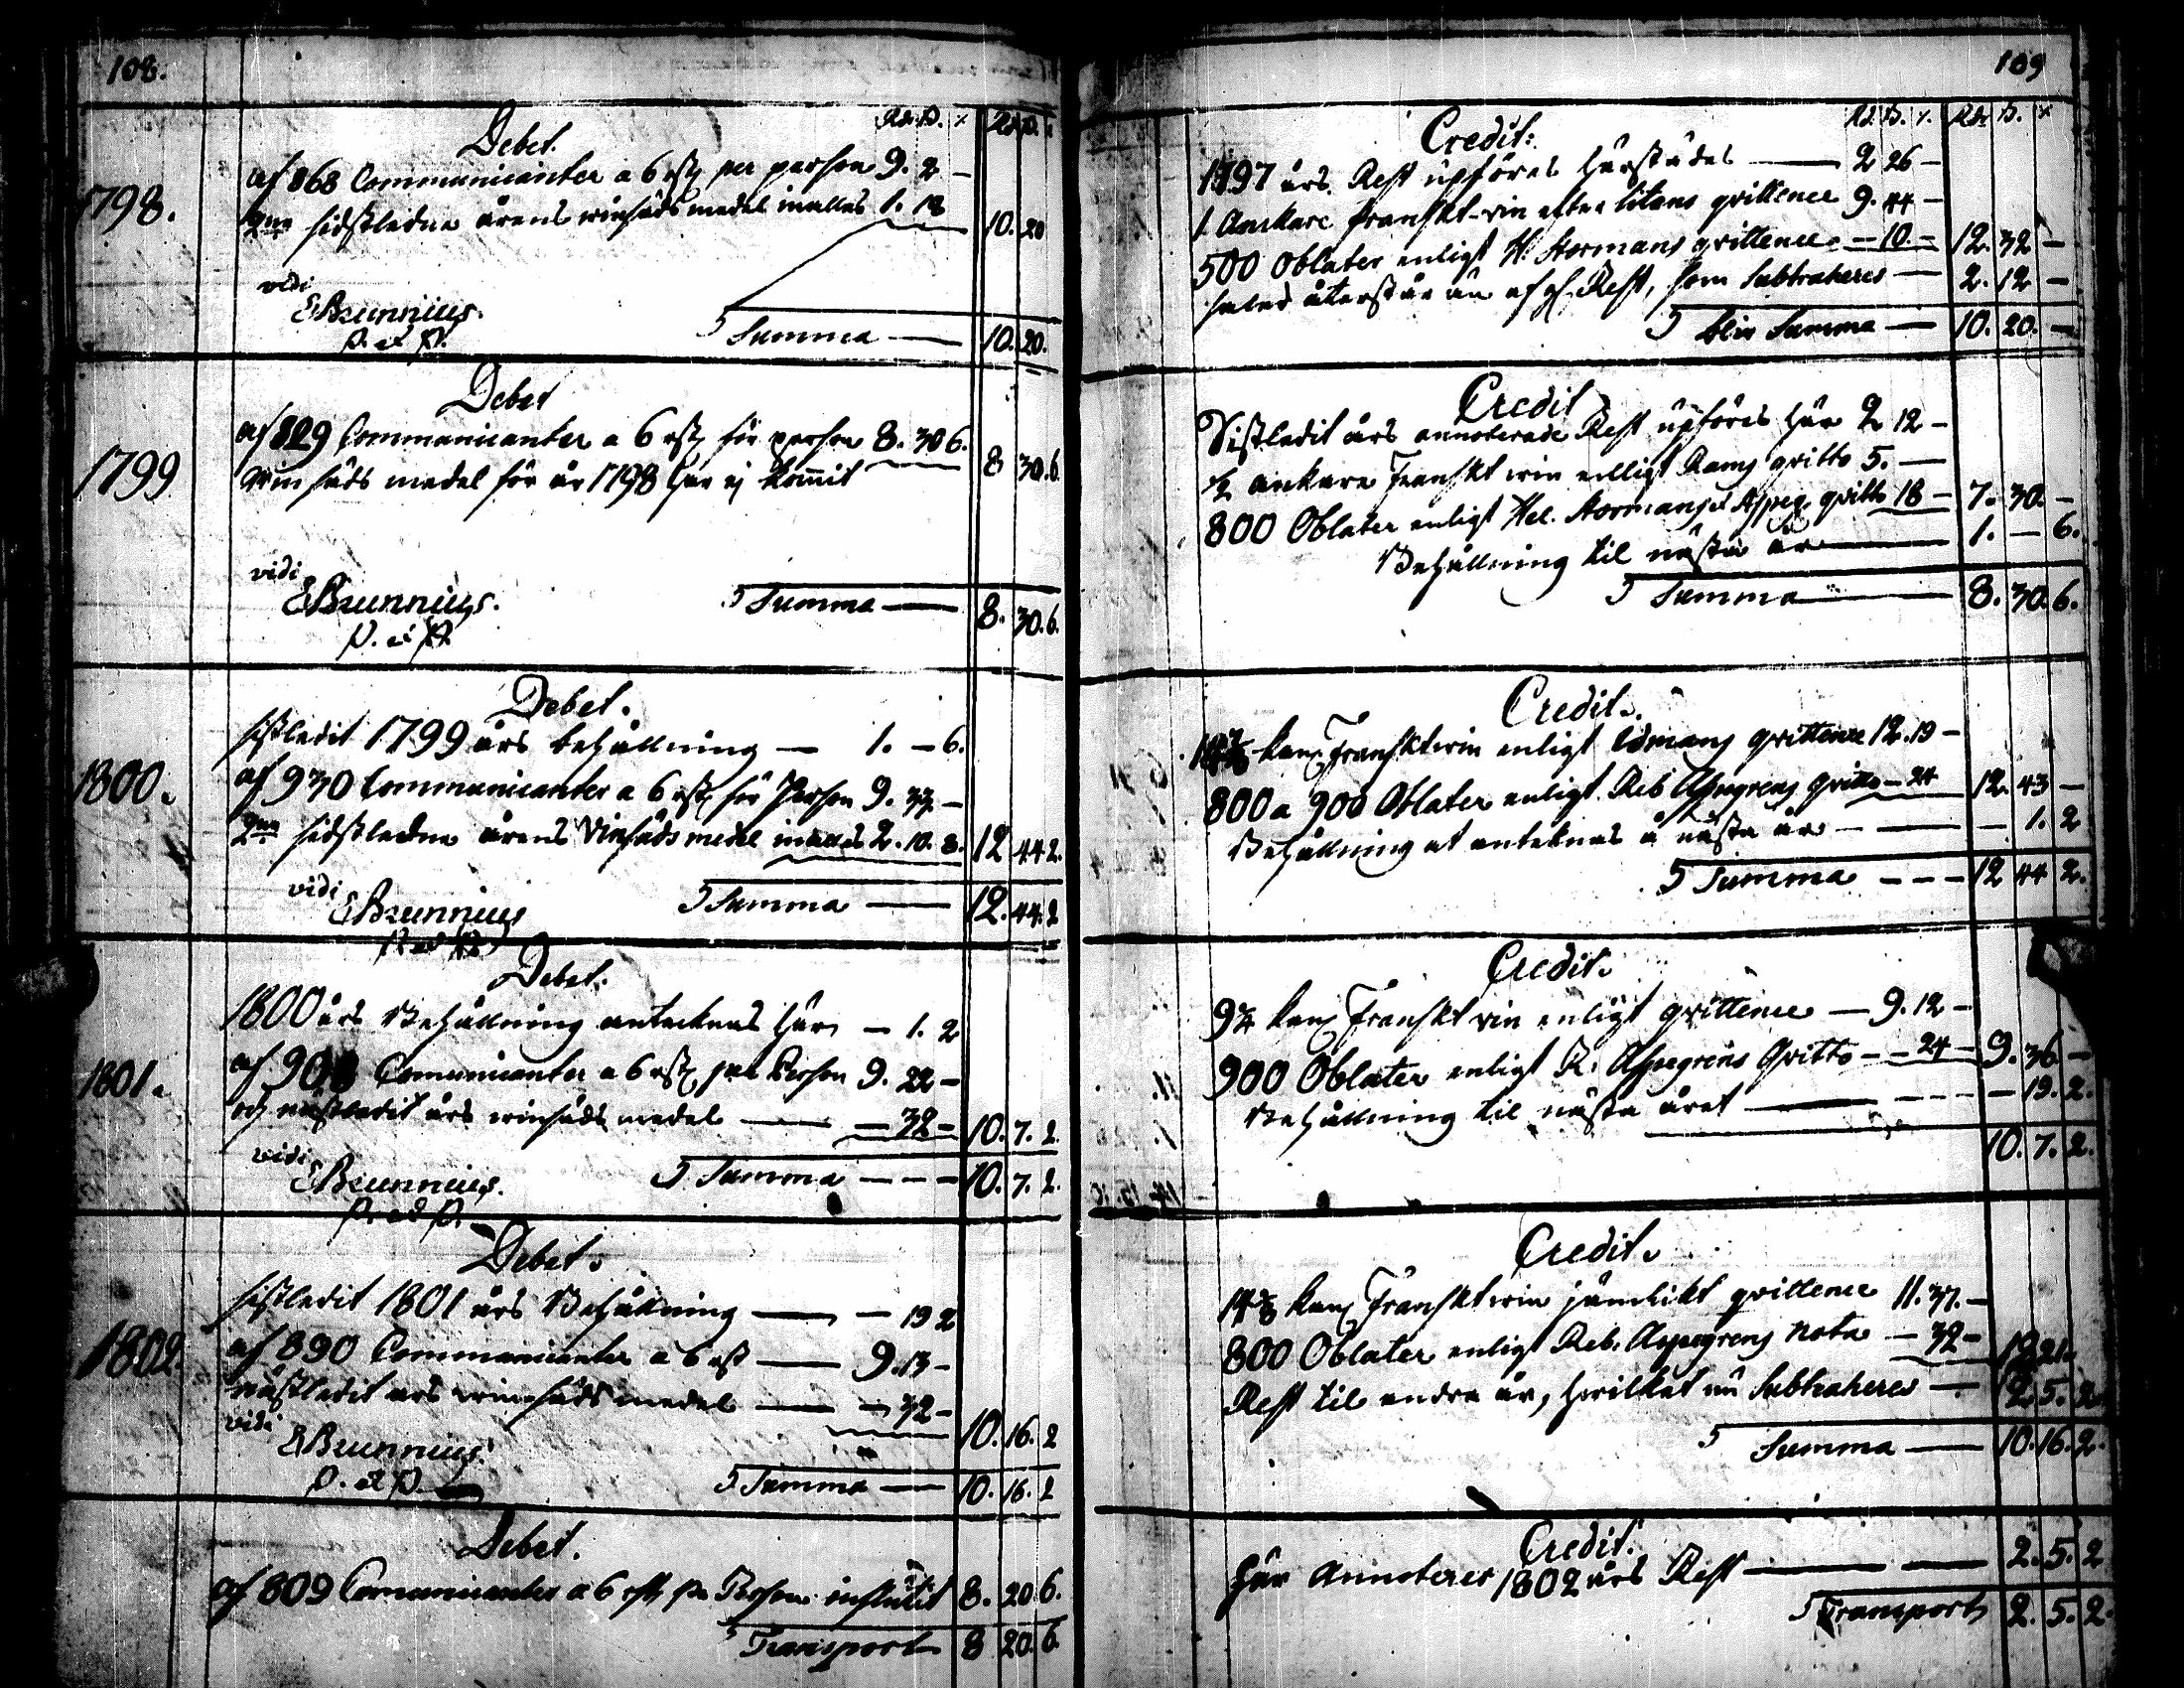 108.
Debet.
Rdr. S. Rdr. S.
1798.
af 868 Communicanter a 6 rst per person 9. 2 –
2ne sidstledne årens winsäds medel inalles 1. 18 10. 20
vidi
EBrunnius.
P. et P.
Summa — 10. 20.
Debet
1799
af 829 Communicanter a 6 rst för person 8. 30 6.
Winsäds medel för år 1798 har ej kommit 8 30. 6
vidi
EBrunnius.
P. et P.
Summa — 8. 30. 6.
Debet.
1800.
sistledit 1799 års behållning — 1. – 6.
af 930 Communicanter a 6 rst för Person 9. 33 –
2ne sidstledne årens Winsäds medel inalles 2. 10. 8. 12 44 2.
vidi
EBrunnius
P. et P.
Summa — 12. 44. 2
Debet.
1801.
1800 års Behållning antecknas här – 1. 2
af 908 Comunicanter a 6 rst per Person 9. 22 –
och nästledit års winsäds medel — – 32 – 10. 7. 2.
vidi
EBrunnius.
P. et P.
Summa – – – 10. 7. 2.
Debet.
1802.
sistledit 1801 års Behållning — – 19 2
af 890 Communicanter a 6 rst — 9. 13 –
nästledit års winsäds medel — – 32 – 10. 16. 2
vidi
EBrunnius.
P. et P.
Summa — 10. 16. 2
Debet.
af 809 Comunicanter a 6 rst pr Person influtit 8. 20 6.
Transport 8 20. 6
109
Credit:
Rd. S. Rdr S.
1797 års Rest upföres härstädes — 2 26 –
1 Anckare franskt-win efter qvittence 9. 44 –
500 Oblater enligt H: Stormans qvittence – 10 – 12. 32 –
återstår än af Rest, som Subtraheres — 2. 12 –
blir Summa — 10. 20. –
Credit
Sistledit års annoterade Rest upföres här 2 12 –
½ ankare Franskt win enligt Rams qvitto 5. —
800 Oblater enligt Hel. Stormans qvitto 18 – 7. 30. –
Behållning til nästa år — 1. – 6.
Summa — 8. 30. 6.
Credit.
kan Franskt win enligt qvittence 12. 19 –
800 a 900 Oblater enligt Reb Aspegrens qvitto – 24 12. 43 –
Behållning at anteknas å nästa år – — – 1. 2
Summa – – – 12 44 2.
Credit.
9¼ kan Franskt win enligt qvittence — 9. 12 –
900 Oblater enligt R. Aspegrens Qvitto – – 24 – 9. 36 –
Behållning til nästa året — – – – – 19. 2.
10. 7. 2.
Credit.
kan Franskt win jämlikt qvittence 11. 37. –
800 Oblater enligt Reb. Aspegrens nota – 32 – 12 21.
Rest til andra år, hvilket nu Subtraheres — 2. 5. 2
Summa — 10. 16. 2.
Credit.
här Annoteres 1802 års Rest — 2. 5. 2
Transport 2. 5. 2.